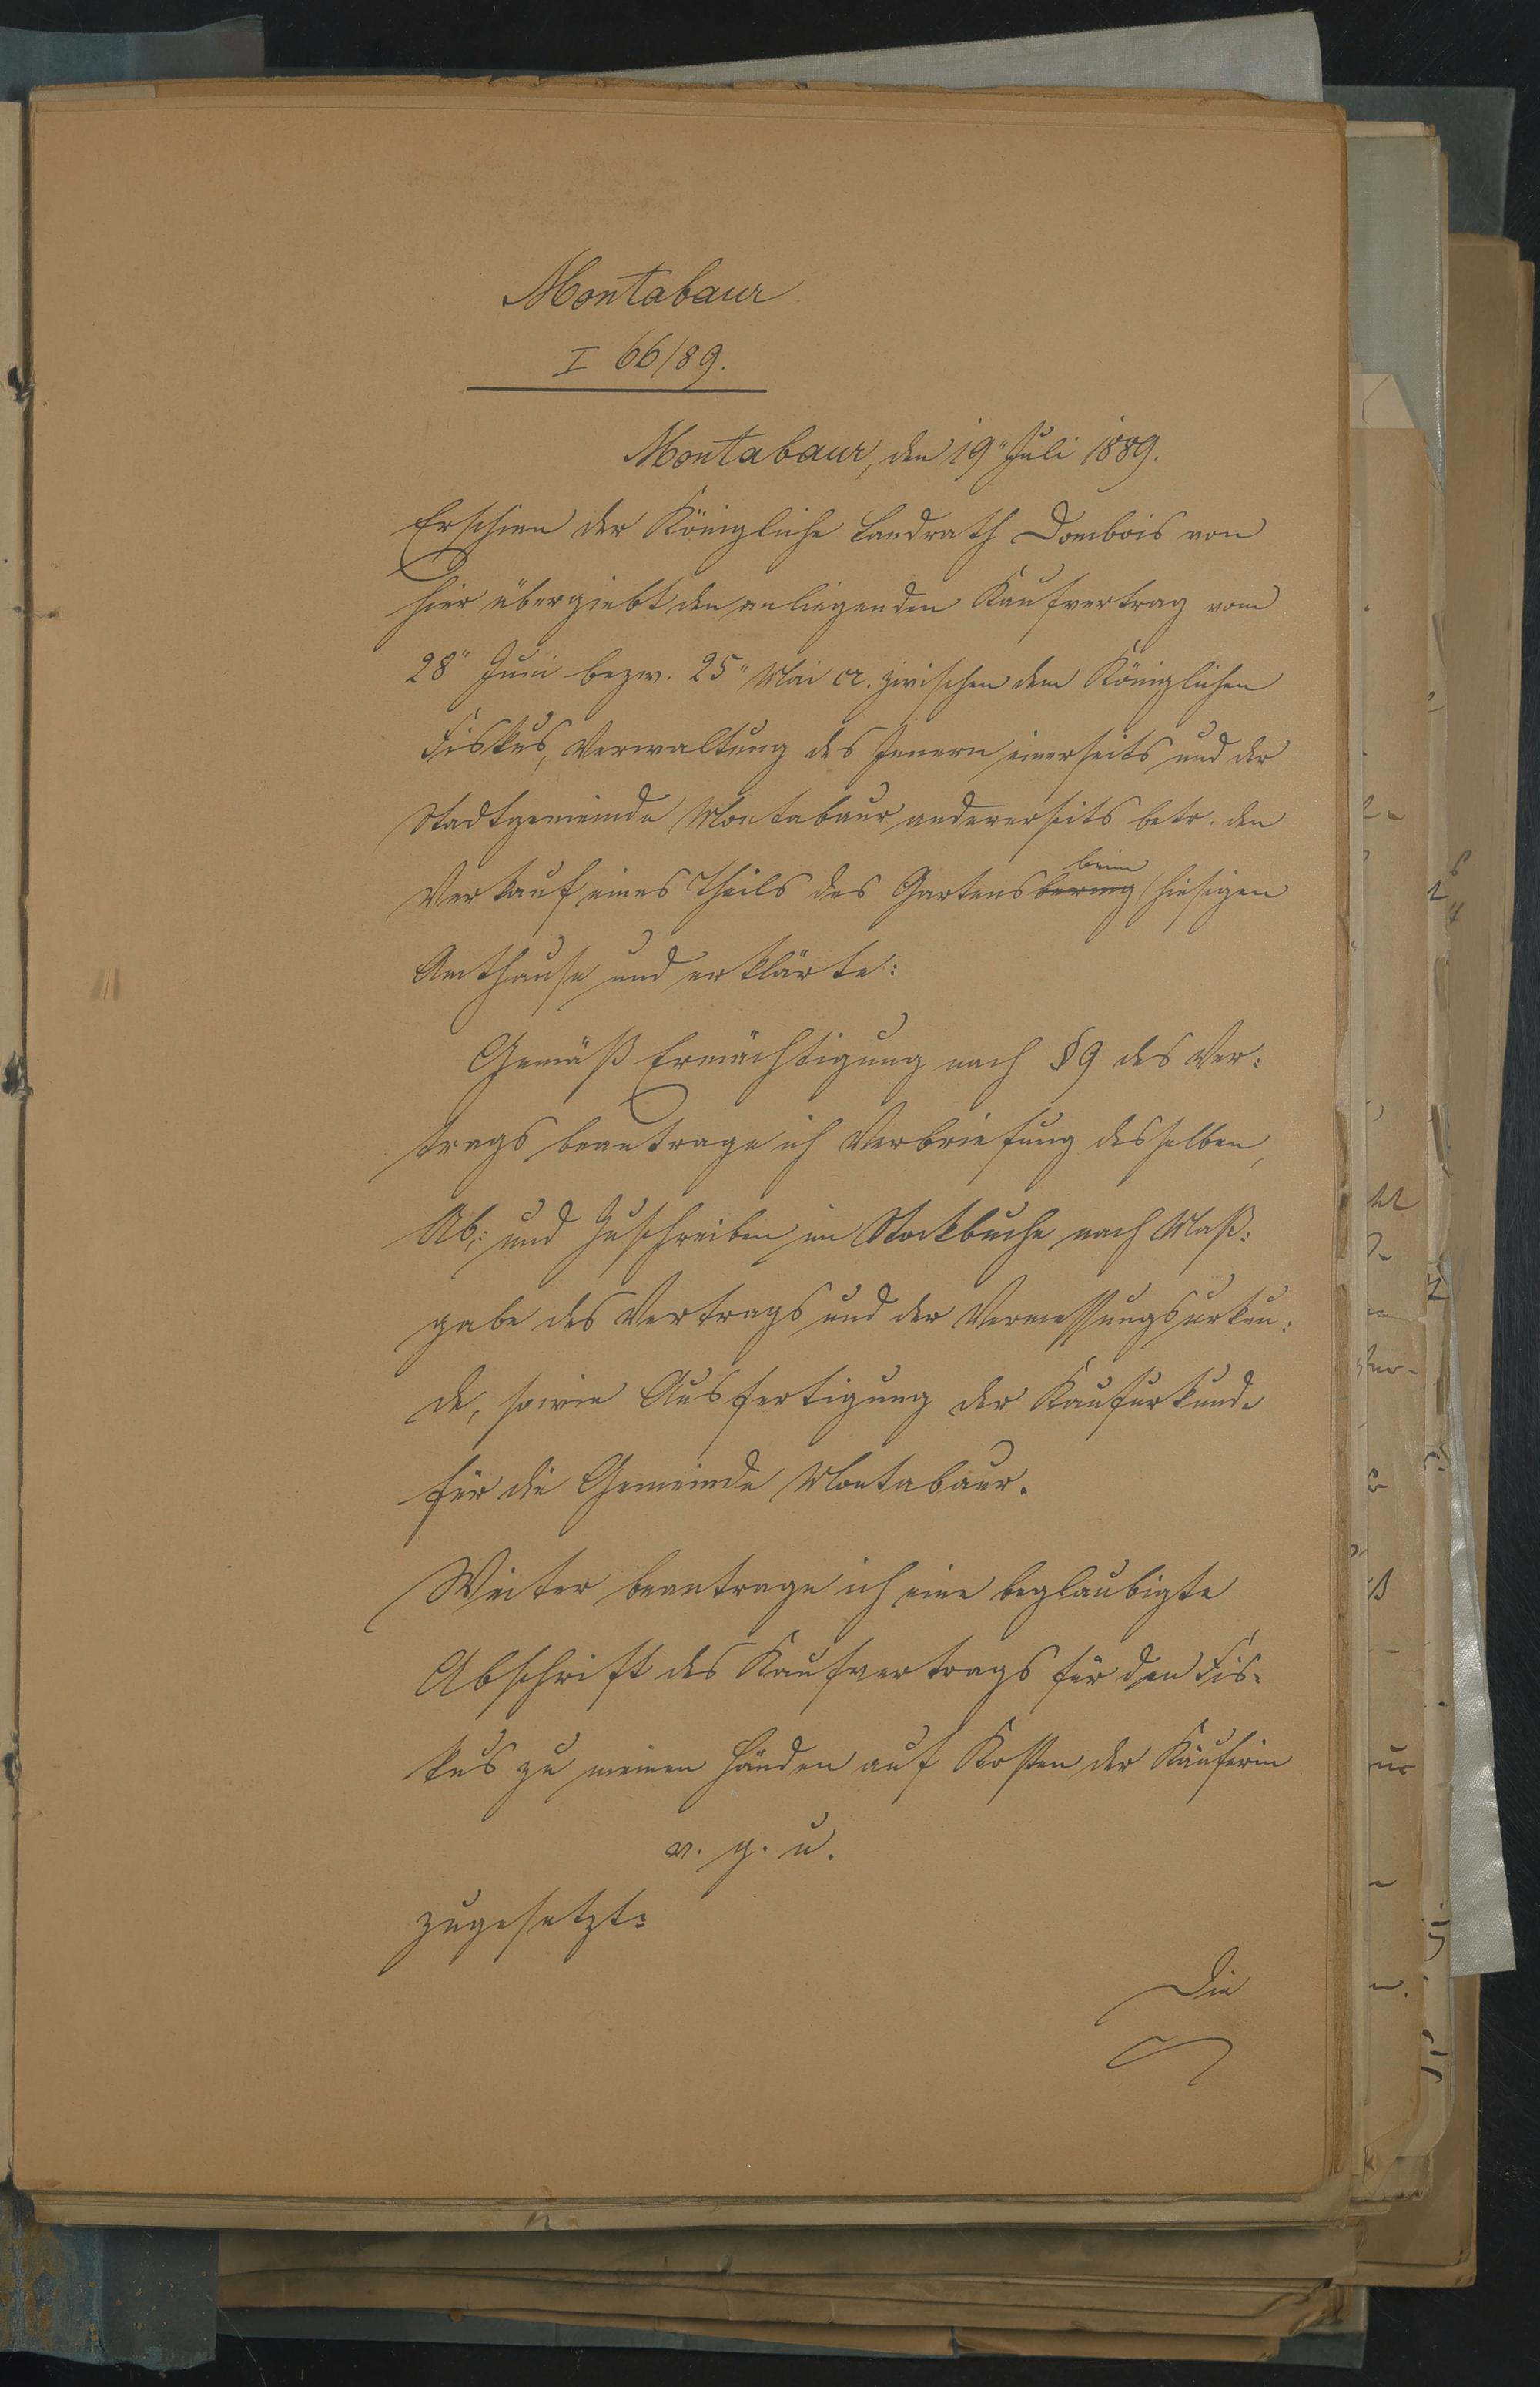 Montabaur
I 66/89.
Montabaur, den 19" Juli 1889.
Erschien der Königliche Landrath Dombois von
hier übergiebt den anliegenden Kaufvertrag vom
28" Juni bezw. 25" Mai cr. zwischen dem Königlichen
Fiskus, Verwaltung des Innern einerseits und der
Stadtgemeinde Montabaur andererseits betr. den
beim
Verkauf eines Theils des Gartens hiesigen
Amthause und erklärte:
Gemäß Ermächtigung nach §9 des Ver:
trags beantrage ich Verbriefung desselben,
Ab: und Zuschreiben im Stockbuche nach Maß:
gabe des Vertrags und der Vermessungsurkun:
de, sowie Ausfertigung der Kaufurkunde
für die Gemeinde Montabaur.
Weiter beantrage ich eine beglaubigte
Abschrift des Kaufvertrags für den Fis-
kus zu meinen Händen auf Kosten der Käuferin
v. g. u.
zugesetzt:
Die